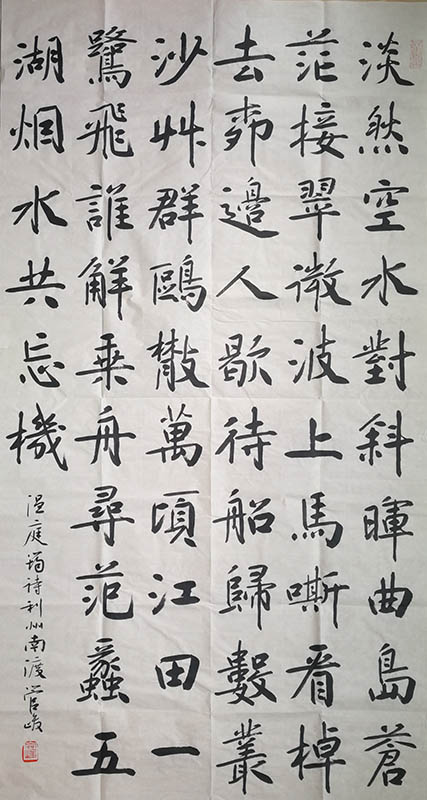 淡然空水對斜暉曲島蒼
茫接翠微波上馬嘶看棹
去桺邊人歇待船歸數叢
沙艸群鷗散萬頃江田一
鷺飛誰解乘舟尋范蠡五
湖烟水共忘機
温庭筠詩利州南渡管峻